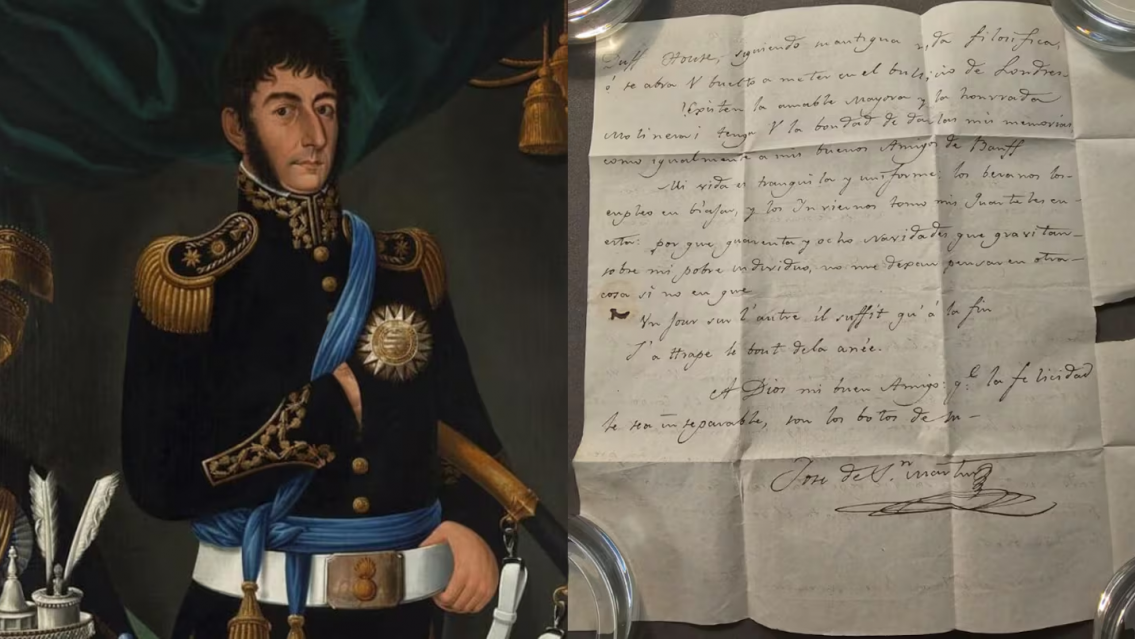 Duff House, siguiendo su antigua vida filosofica,
ó se abra V buelto a meter en el bulicio de Londres.
¡Existen la amable Mayora y la honrrada
Molinera! tenga V la bondad de darlas mis memorias
como igualmente a mis buenos Amigos de Banff
Mi vida es tranquila y uniforme: los beranos los-
empleo en biajar, y los Inviernos tomo mis Quarteles en-
esta: por que, quarenta y ocho Navidades que gravitan-
sobre mi pobre individuo, no me dexan pensar en otra-
cosa si no en que
Un jour sur l'autre il suffit qu'á la fin
J'attrape le bout dela anée.
A Dios mi buen Amigo: q.e la felicidad
le sea inseparable, son los botos de su-
Jose de S.n Martin